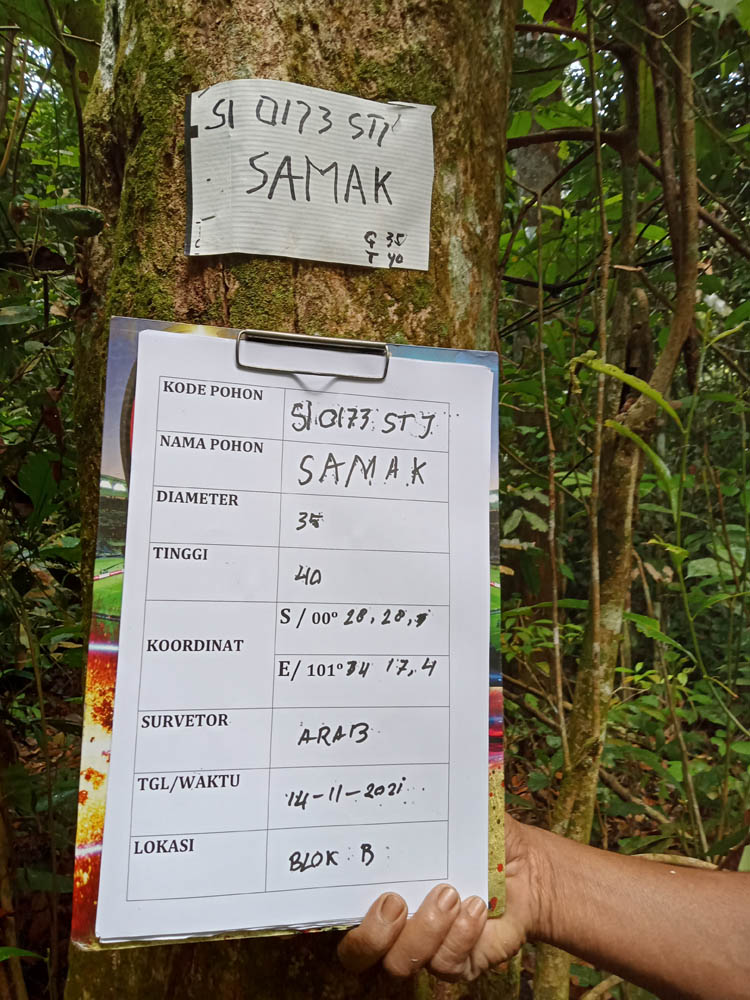 SI 0173 STJ
SAMAK
G 35
T 40
KODE POHON SI 0173 STJ
NAMA POHON SAMAK
DIAMETER 35
TINGGI 40
KOORDINAT
S / 00º 28, 28,
E/ 101º 34 17,4
SURVETOR ARAB
TGL/WAKTU 14-11-2021
LOKASI BLOK B